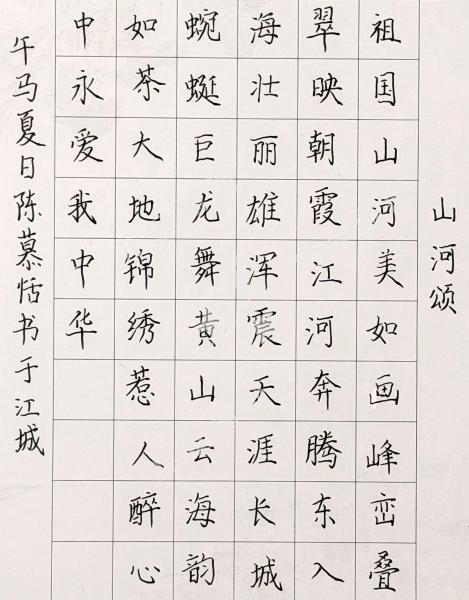 山河颂
祖国山河美如画峰峦叠
翠映朝霞江河奔腾东入
海壮丽雄浑震天涯长城
蜿蜒巨龙舞黄山云海韵
如茶大地锦绣惹人醉心
中永爱我中华
午马夏日陈慕恬书于江城